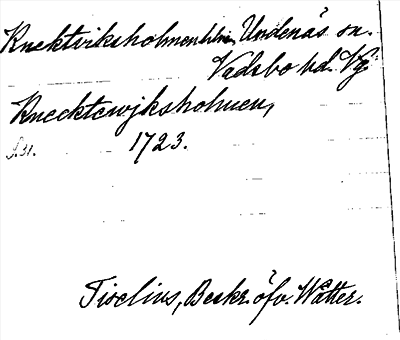 Knektviksholmen hlm, Undenäs sn.
Vadsbo hd. Vg.
Knecktewjksholmen,
S. 31. 1723.
Tiselius, Beskr. öfv. Wätter.